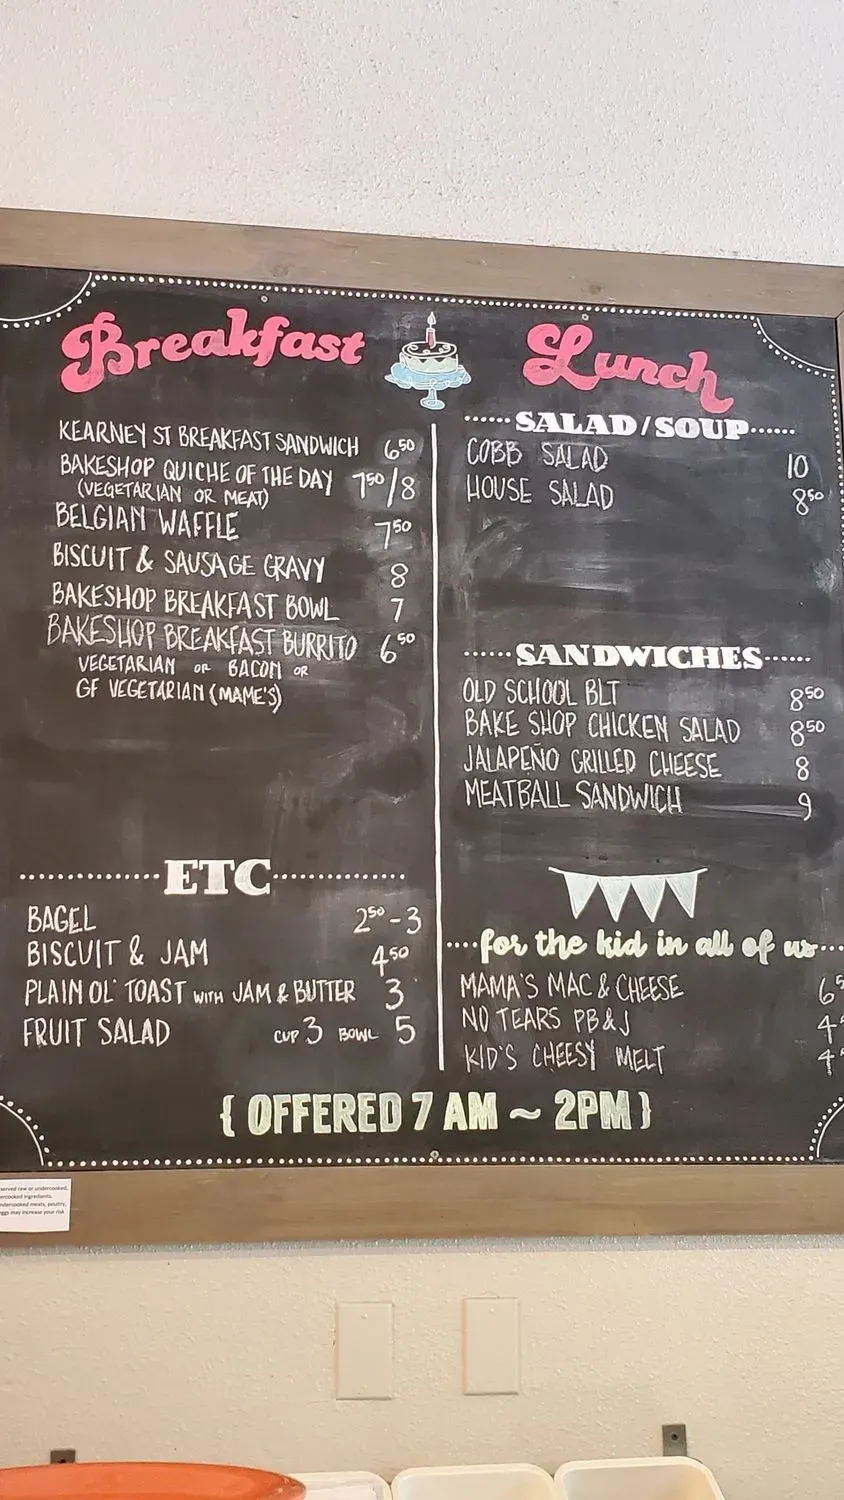 Breakfast
KEARNEY ST BREAKFAST SANDWICH 6.50
BAKESHOP QUICHE OF THE DAY 7.50/8
(VEGETARIAN OR MEAT)
BELGIAN WAFFLE 7.50
BISCUIT & SAUSAGE GRAVY 8
BAKESHOP BREAKFAST BOWL 7
BAKESHOP BREAKFAST BURRITO 6.50
VEGETARIAN OR BACON OR
GF VEGETARIAN (MAME'S)
ETC
BAGEL 2.50-3
BISCUIT & JAM 4.50
PLAIN OL' TOAST WITH JAM & BUTTER 3
FRUIT SALAD CUP 3 BOWL 5
Lunch
SALAD/SOUP
COBB SALAD 10
HOUSE SALAD 8.50
SANDWICHES
OLD SCHOOL BLT 8.50
BAKE SHOP CHICKEN SALAD 8.50
JALAPEÑO GRILLED CHEESE 8
MEATBALL SANDWICH 9
for the kid in all of us
MAMA'S MAC & CHEESE 6
NO TEARS PB&J 4
KID'S CHEESY MELT 4
{ OFFERED 7 AM ~ 2PM }
served raw or undercooked,
ercooked ingredients.
ndercooked meats, poultry,
eggs may increase your risk